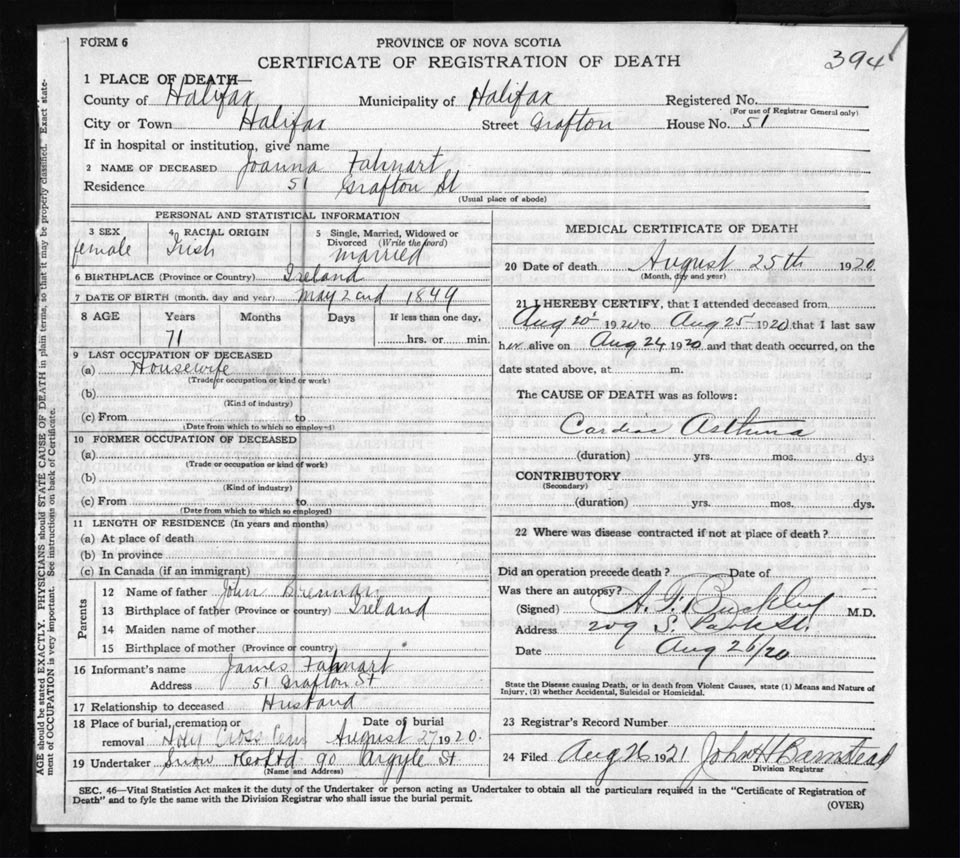 FORM 6
PROVINCE OF NOVA SCOTIA
CERTIFICATE OF REGISTRATION OF DEATH
394
1 PLACE OF DEATH—
County of Halifax Municipality of Halifax Registered No.
(For use of Registrar General only)
City or Town Halifax Street Grafton House No. 51
If in hospital or institution, give name
2 NAME OF DECEASED Joanna Fahnart
Residence 51 Grafton St
(Usual place of abode)
PERSONAL AND STATISTICAL INFORMATION
3 SEX 4 RACIAL ORIGIN 5 Single, Married, Widowed or Divorced (Write the word)
female Irish married
6 BIRTHPLACE (Province or Country) Ireland
7 DATE OF BIRTH (month, day and year) May 2nd 1849
8 AGE Years Months Days If less than one day,
71 hrs. or min.
9 LAST OCCUPATION OF DECEASED
(a) Housewife
(Trade or occupation or kind or work)
(b)
(Kind of industry)
(c) From to
(Date from which to which so employed)
10 FORMER OCCUPATION OF DECEASED
(a)
(Trade or occupation or kind of work)
(b)
(Kind of industry)
(c) From to
(Date from which to which so employed)
11 LENGTH OF RESIDENCE (In years and months)
(a) At place of death
(b) In province
(c) In Canada (if an immigrant)
Parents
12 Name of father John Brennan
13 Birthplace of father (Province or country) Ireland
14 Maiden name of mother
15 Birthplace of mother (Province or country)
16 Informant's name James Fahnart
Address 51 Grafton St
17 Relationship to deceased Husband
18 Place of burial, cremation or removal Holy Cross Cem Date of burial August 27 1920
19 Undertaker Snow & Co Ltd 90 Argyle St
(Name and Address)
MEDICAL CERTIFICATE OF DEATH
20 Date of death August 25th 1920
(Month, day and year)
21 I HEREBY CERTIFY, that I attended deceased from
Aug 20 1920 to Aug 25 1920 that I last saw
her alive on Aug 24 1920 and that death occurred, on the
date stated above, at m.
The CAUSE OF DEATH was as follows:
Cardiac Asthma
(duration) yrs. mos. dys
CONTRIBUTORY
(Secondary)
(duration) yrs. mos. dys.
22 Where was disease contracted if not at place of death?
Did an operation precede death? Date of
Was there an autopsy?
(Signed) A. G. Buckley M.D.
Address 209 S. Park St.
Date Aug 26/20
State the Disease causing Death, or in death from Violent Causes, state (1) Means and Nature of
Injury, (2) whether Accidental, Suicidal or Homicidal.
23 Registrar's Record Number
24 Filed Aug 26 1921 John H Barnstead
Division Registrar
SEC. 46—Vital Statistics Act makes it the duty of the Undertaker or person acting as Undertaker to obtain all the particulars required in the "Certificate of Registration of
Death" and to fyle the same with the Division Registrar who shall issue the burial permit.
(OVER)
AGE should be stated EXACTLY. PHYSICIANS should STATE CAUSE OF DEATH in plain terms, so that it may be properly classified. Exact state-
ment of OCCUPATION is very important. See instructions on back of Certificate.